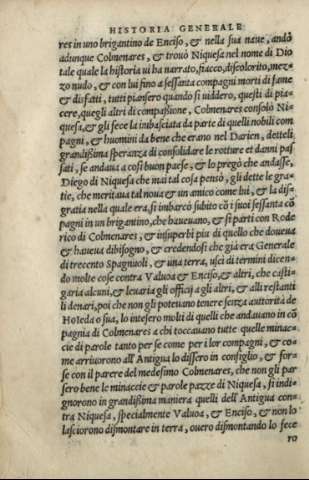 HISTORIA GENERALE
res in uno brigantino de Enciso, & nella sua naue, andò
adunque Colmenares, & trouò Niquesa nel nome di Dio
tale quale la historia ui ha narrato, fiacco, discolorito, mez-
zo nudo, & con lui fino a sessanta compagni morti di fame
& disfatti, tutti piansero quando si uiddero, questi di pia-
cere, quegli altri di compassione, Colmenares consolò Ni-
quesa, & gli fece la imbasciata da parte di quelli nobili com
pagni, & huomini da bene che erano nel Darien, detteli
grandissima speranza di consolidare le rotture et danni pas
sati, se andaua a così buon paese, & lo pregò che andasse,
Diego di Niquesa che mai tal cosa pensò, gli dette le gra-
tie, che meritaua tal noua & un amico come lui, & la disa-
gratia nella quale era, si imbarcò subito cõ i suoi sessanta cõ
pagni in un brigantino, che haueuano, & si parti con Rode
rico di Colmenares, & insuperbi piu di quello che doueua
& haueua dibisogno, & credendosi che già era Generale
di trecento Spagnuoli, & una terra, uscì di termini dicen-
do molte cose contra Valuoa & Enciso, & altri, che casti-
garia alcuni, & leuaria gli officij a gli altri, & alli restanti
li denari, poi che non gli poteuano tenere senza autorità de
Hoieda o sua, lo intesero molti di quelli che andauano in cõ
pagnia di Colmenares a chi toccauano tutte quelle minac-
cie di parole tanto per se come per i lor compagni, & co-
me arriuorono all'Antigua lo dissero in consiglio, & for-
se con il parere del medesimo Colmenares, che non gli par
sero bene le minaccie & parole pazze di Niquesa, si indi-
gnorono in grandissima maniera quelli dell'Antigua con-
tra Niquesa, specialmente Valuoa, & Enciso, & non lo
lasciorono dismontare in terra, ouero dismontando lo fece
ro